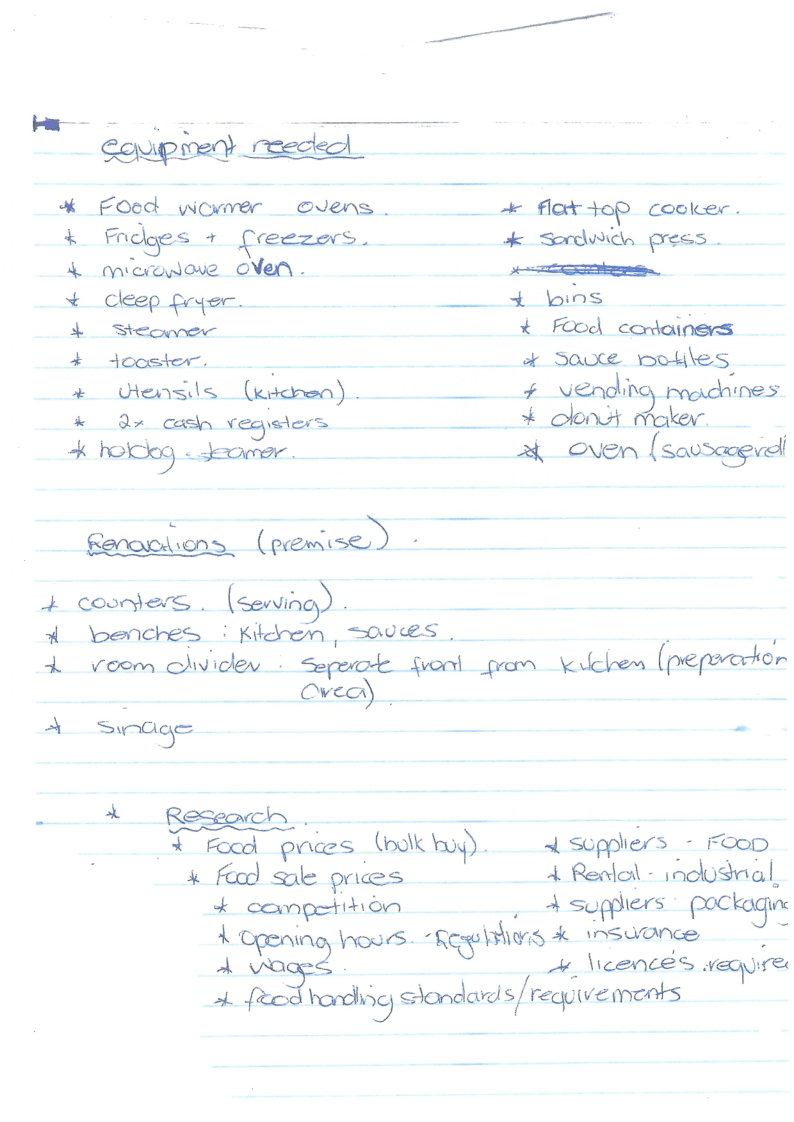 equipment needed
* Food warmer ovens.
* Fridges + freezers.
* microwave oven.
* deep fryer.
* steamer
* toaster.
* utensils (kitchen).
* 2x cash registers
* hotdog steamer.
* flat top cooker.
* sandwich press.
* counters
* bins
* Food containers
* sauce bottles
* vending machines
* donut maker.
* oven (sausageroll
Renovations (premise).
* counters. (serving).
* benches : kitchen, sauces.
* room divider : seperate front from kitchen (preperation
area).
* sinage
* Research.
* Food prices (bulk buy).
* Food sale prices
* competition
* opening hours. - regulations
* wages.
* food handling standards/requirements
* suppliers - FOOD
* Rental - industrial
* suppliers packaging
* insurance
* licences.require